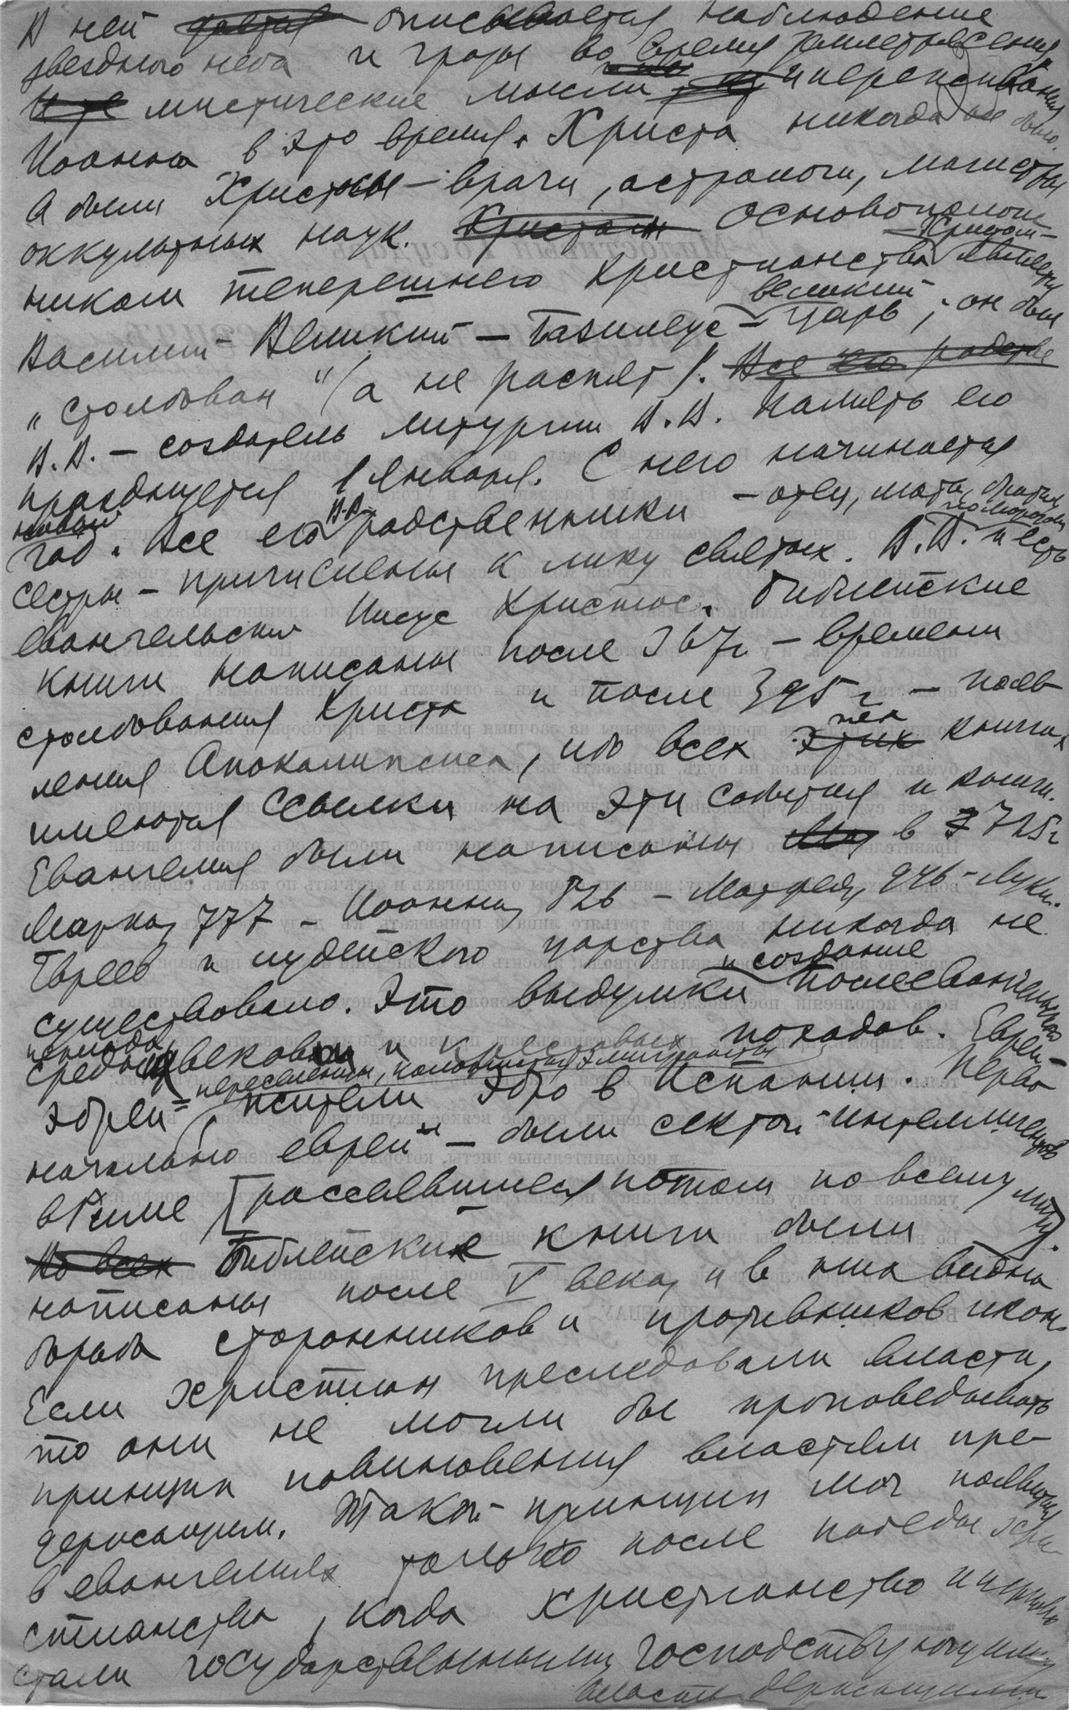 В ней описывается наблюдение
звездного неба и грозы во время землетрясения
мистические мысли и переживания
Иоанна в это время. Христа никогда не было.
А были Христы – врачи, астрологи, магистры
оккультных наук. основополож-
ником теперешнего христианства является
Василий – Великий – Базилеус – великий царь; он был
„столбован“ (а не распят).
В.В. – создатель литургии В.В. Память его
празднуется 1 января. С него начинается
новый год. Все его В.В. родственники – отец, мать, братья,
сестры – причислены к лику святых. В.В. и есть
евангельский Иисус Христос. Библейские
книги написаны после 367 г – времени
столбования Христа и после 395 г – появ-
ления Апокалипсиса, ибо всех книгах
имеются ссылки на эти события и книги.
Евангелия были написаны в 725 г
Марка, 777 – Иоанна, 826 – Матфея, 946 – Луки.
Евреев и иудейского царства никогда не
существовало. Это выдумки и создание послеевангельского
периода средневековья и крестовых походов. Еврей –
эбрей = переселенцы, эмигранты жители Эбро в Испании. Перво-
начально евреи – были сектой интеллигентов
в Риме рассеявшиеся потом по всему миру.
Библейские книги были
написаны после V века, и в них видна
борьба сторонников и противников икон.
Если христиан преследовали власти,
то они не могли бы проповедывать
принцип повиновения властям пре-
держащим. Такой принцип мог появиться
в евангелиях только после победы хри-
стианства, когда христианство и церковь
стали государственными, господствующими,
власти держащими